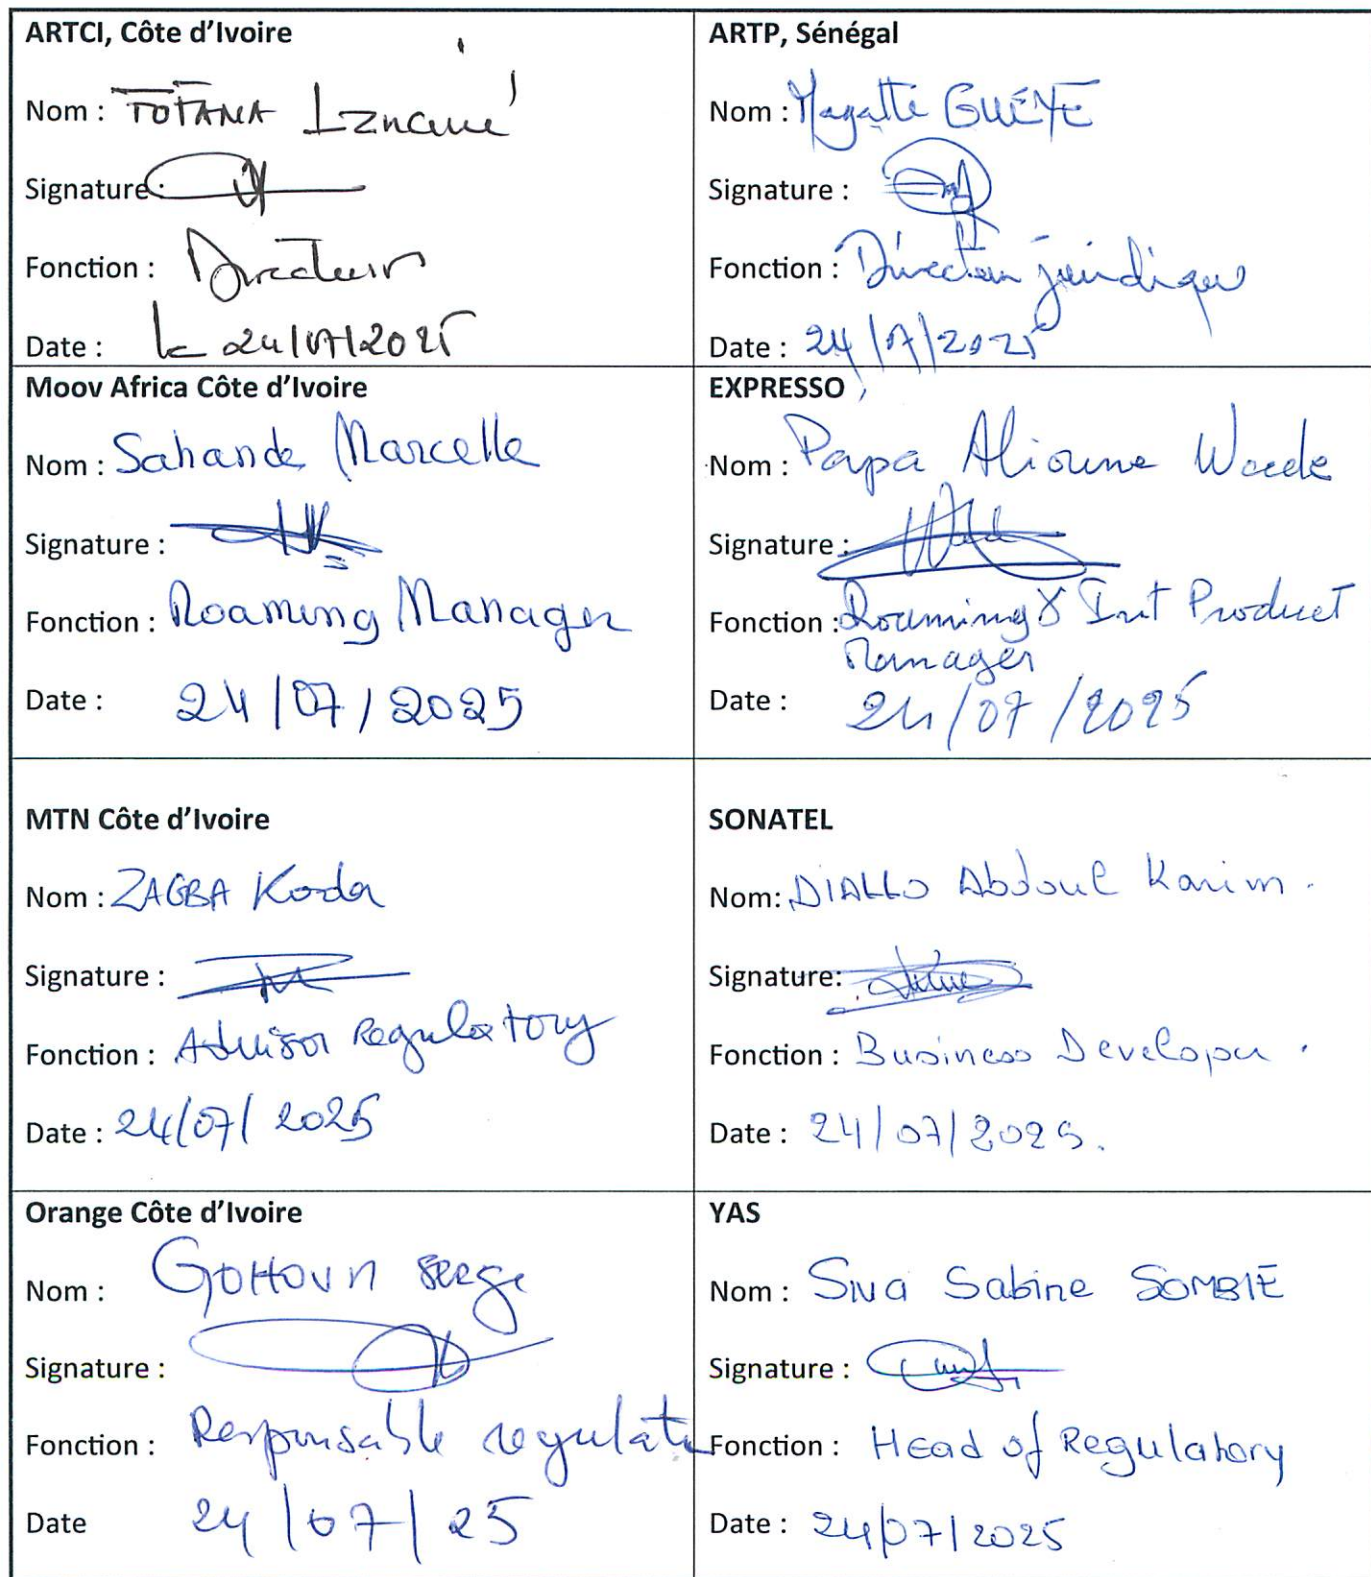 ARTCI, Côte d'Ivoire
Nom : FOFANA
Signature :
Fonction : Directeur
Date : Le 24/07/2025
ARTP, Sénégal
Nom : Magatte GUÉYE
Signature :
Fonction : Directeur juridique
Date : 24/07/2025
Moov Africa Côte d'Ivoire
Nom : Sahande Marcelle
Signature :
Fonction : Roaming Manager
Date : 24/07/2025
EXPRESSO
Nom : Papa Alioune Wade
Signature :
Fonction : Roaming & Int Product
Manager
Date : 24/07/2025
MTN Côte d'Ivoire
Nom : ZAGBA Koda
Signature :
Fonction : Advisor Regulatory
Date : 24/07/2025
SONATEL
Nom: DIALLO Abdoul Karim.
Signature:
Fonction : Business Developer.
Date : 24/07/2025.
Orange Côte d'Ivoire
Nom : GOHOUN Serge
Signature :
Fonction : Responsable
Date 24/07/25
YAS
Nom : Siva Sabine SOMBIE
Signature :
Fonction : Head of Regulatory
Date : 24/07/2025